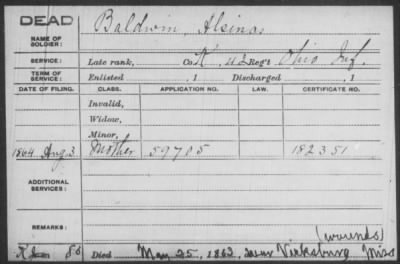 DEAD
NAME OF SOLDIER: Baldwin, Alsinas
SERVICE: Late rank, Co. K, 42 Reg't Ohio Inf.
TERM OF SERVICE: Enlisted , 1 Discharged , 1
DATE OF FILING. CLASS. APPLICATION NO. CERTIFICATE NO.
Invalid,
Widow,
Minor,
1864 Aug. 3 Mother 59705 182351
ADDITIONAL SERVICES:
REMARKS:
(wounds)
Died May 25, 1863, near Vicksburg Miss